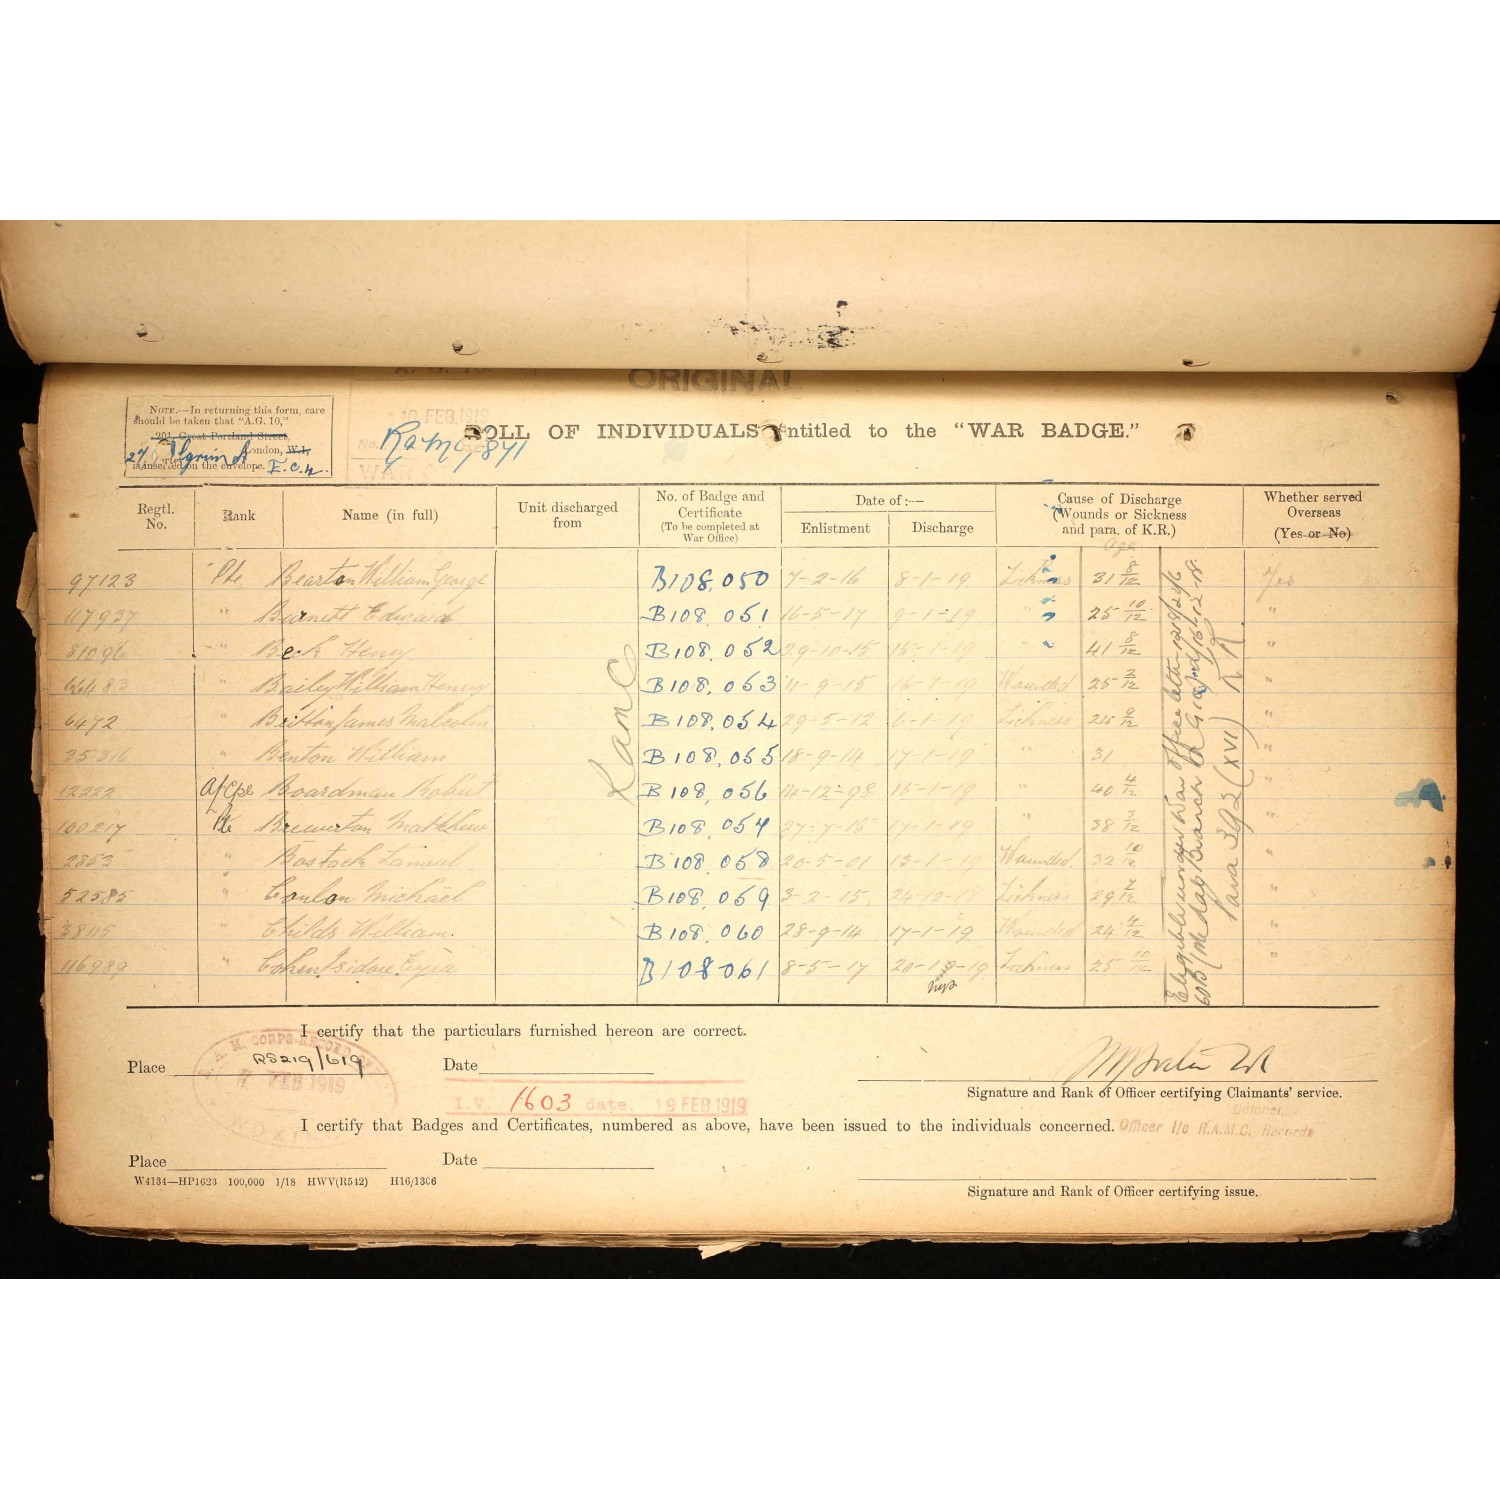 ORIGINAL
NOTE.—In returning this form, care
should be taken that "A.G. 10,"
201, Great Portland Street,
London, W.1.
27 Pilgrim St E.C.4.
is inserted on the envelope.
10 FEB.1919
RAMC/841
ROLL OF INDIVIDUALS entitled to the "WAR BADGE."
Regtl. No. Rank Name (in full) Unit discharged from No. of Badge and Certificate (To be completed at War Office) Date of:— Enlistment Discharge Cause of Discharge (Wounds or Sickness and para. of K.R.) Whether served Overseas (Yes or No)
Age
97123 Pte Bearton William George B108,050 7-2-16 8-1-19 Sickness 31 8/12 Yes
117937 " Burnett Edward B108,051 16-5-17 9-1-19 " 25 10/12 "
81096 " Beck Henry B108,052 29-10-15 15-1-19 " 41 8/12 "
66483 " Bailey William Henry B108,053 11-9-15 16-1-19 Wounded 25 2/12 "
6472 " Britton James Malcolm B108,054 29-5-12 6-1-19 Sickness 24 9/12 "
35316 " Benton William B108,055 18-9-14 17-1-19 " 31 "
12222 A/Cpl Boardman Robert B108,056 14-12-98 15-1-19 " 40 4/12 "
100217 Pte Brewerton Matthew B108,057 27-7-15 17-1-19 " 38 3/12 "
2853 " Bostock Samuel B108,058 20-5-01 13-1-19 Wounded 32 10/12 "
52585 " Conlon Michael B108,059 3-2-15 24-12-18 Sickness 29 7/12 "
38115 " Childs William. B108,060 28-9-14 17-1-19 Wounded 24 4/12 "
116989 " Cohen Isidore B108061 8-5-17 20-1-19 Sickness 25 10/12 "
RAMC
Eligible under War Office letter
(Medal Branch
Para 392 (XVI) K.R.
I certify that the particulars furnished hereon are correct.
Place RS219/619 Date
R.A.M. CORPS RECORD
FEB 1919
WOKING
I.V. 1603 date. 19 FEB.1919
Signature and Rank of Officer certifying Claimants' service.
Colonel,
Officer I/c R.A.M.C. Records
I certify that Badges and Certificates, numbered as above, have been issued to the individuals concerned.
Place Date
W4134—HP1623 100,000 1/18 HWV(R542) H16/1306
Signature and Rank of Officer certifying issue.